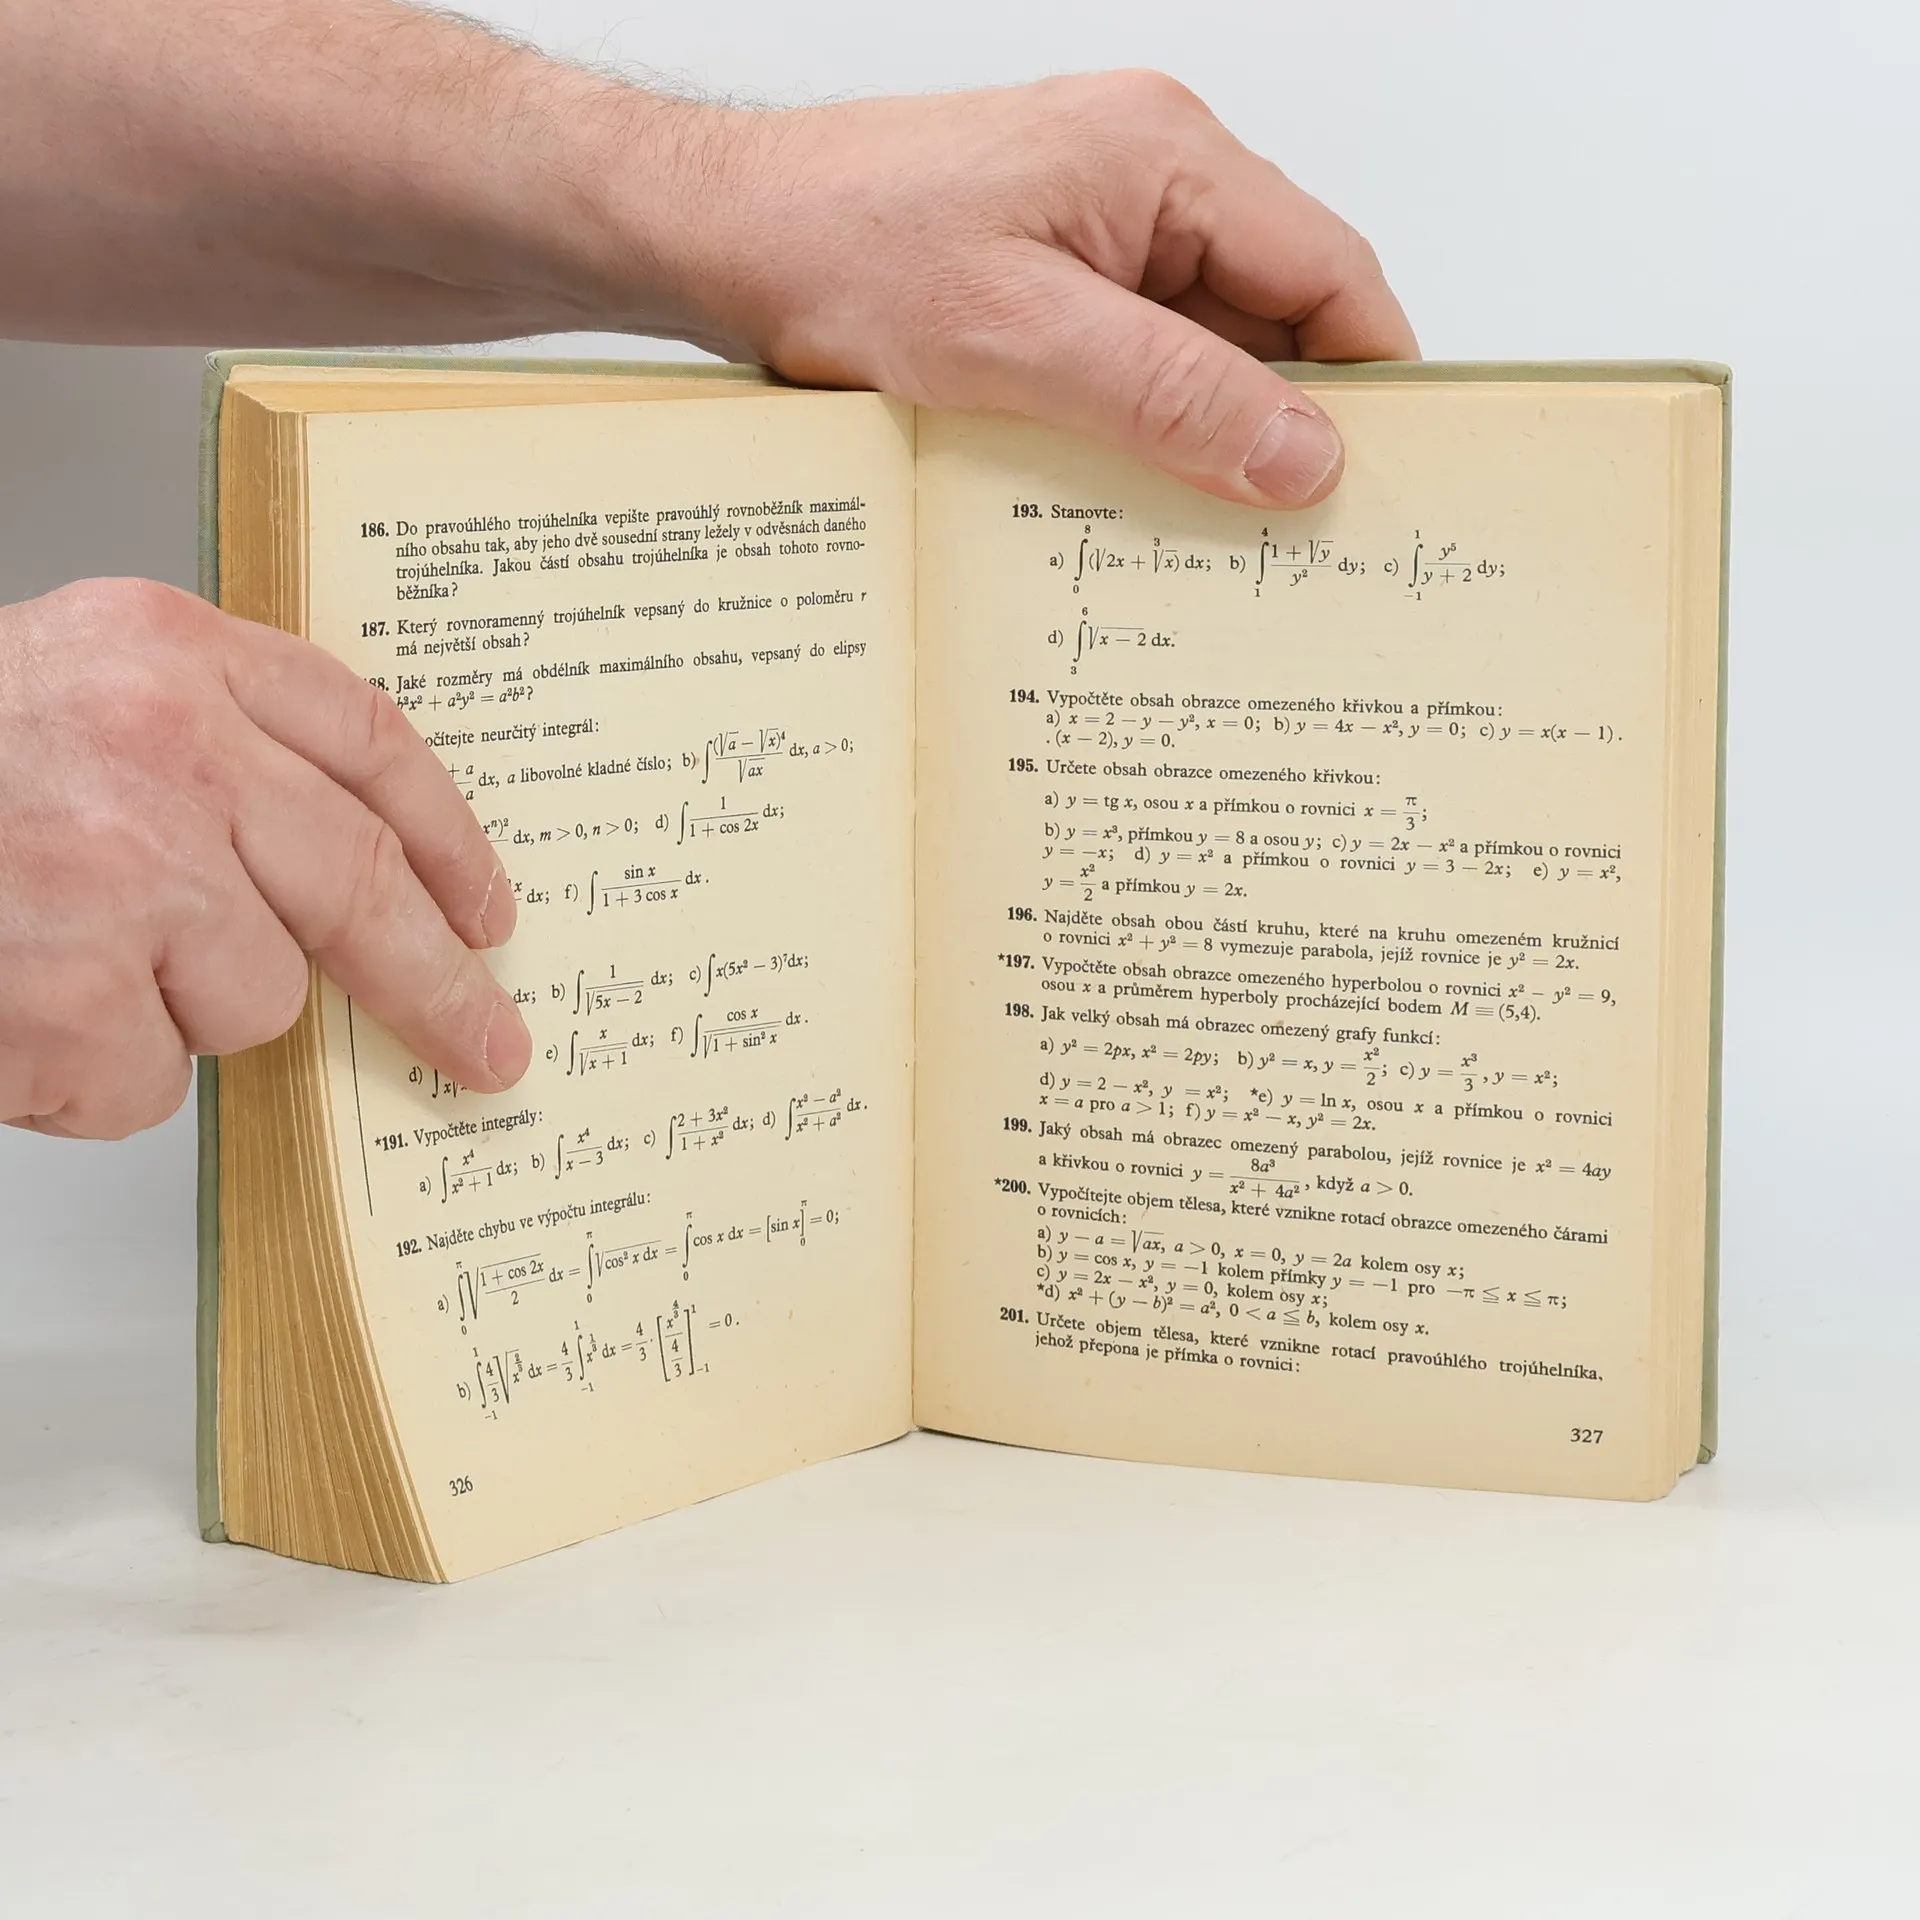 186. Do pravoúhlého trojúhelníka vepište pravoúhlý rovnoběžník maximál-
ního obsahu tak, aby jeho dvě sousední strany ležely v odvěsnách daného
trojúhelníka. Jakou částí obsahu trojúhelníka je obsah tohoto rovno-
běžníka?
187. Který rovnoramenný trojúhelník vepsaný do kružnice o poloměru r
má největší obsah?
88. Jaké rozměry má obdélník maximálního obsahu, vepsaný do elipsy
b²x² + a²y² = a²b²?
očítejte neurčitý integrál:
+ a / a dx, a libovolné kladné číslo; b) ∫ (√a − √x)⁴ / √ax dx, a > 0;
xⁿ)² dx, m > 0, n > 0; d) ∫ 1 / (1 + cos 2x) dx;
x dx; f) ∫ sin x / (1 + 3 cos x) dx.
dx; b) ∫ 1 / √(5x − 2) dx; c) ∫ x(5x² − 3)⁷ dx;
d) ∫ x√ e) ∫ x / √(x + 1) dx; f) ∫ cos x / √(1 + sin² x) dx.
*191. Vypočtěte integrály:
a) ∫ x⁴ / (x² + 1) dx; b) ∫ x⁴ / (x − 3) dx; c) ∫ (2 + 3x²) / (1 + x²) dx; d) ∫ (x² − a²) / (x² + a²) dx.
192. Najděte chybu ve výpočtu integrálu:
a) ∫₀^π √((1 + cos 2x) / 2) dx = ∫₀^π √(cos² x dx) = ∫₀^π cos x dx = [sin x]₀^π = 0;
b) ∫₋₁^1 (4/3) √(x^(2/3)) dx = (4/3) ∫₋₁^1 x^(1/3) dx = (4/3) · [x^(4/3) / (4/3)]₋₁^1 = 0.
326
193. Stanovte:
a) ∫₀^8 (√2x + ³√x) dx; b) ∫₁^4 (1 + √y) / y² dy; c) ∫₋₁^1 y⁵ / (y + 2) dy;
d) ∫₃^6 √(x − 2) dx.
194. Vypočtěte obsah obrazce omezeného křivkou a přímkou:
a) x = 2 − y − y², x = 0; b) y = 4x − x², y = 0; c) y = x(x − 1) .
. (x − 2), y = 0.
195. Určete obsah obrazce omezeného křivkou:
a) y = tg x, osou x a přímkou o rovnici x = π/3;
b) y = x³, přímkou y = 8 a osou y; c) y = 2x − x² a přímkou o rovnici
y = −x; d) y = x² a přímkou o rovnici y = 3 − 2x; e) y = x²,
y = x²/2 a přímkou y = 2x.
196. Najděte obsah obou částí kruhu, které na kruhu omezeném kružnicí
o rovnici x² + y² = 8 vymezuje parabola, jejíž rovnice je y² = 2x.
*197. Vypočtěte obsah obrazce omezeného hyperbolou o rovnici x² − y² = 9,
osou x a průměrem hyperboly procházející bodem M ≡ (5,4).
198. Jak velký obsah má obrazec omezený grafy funkcí:
a) y² = 2px, x² = 2py; b) y² = x, y = x²/2; c) y = x³/3, y = x²;
d) y = 2 − x², y = x²; *e) y = ln x, osou x a přímkou o rovnici
x = a pro a > 1; f) y = x² − x, y² = 2x.
199. Jaký obsah má obrazec omezený parabolou, jejíž rovnice je x² = 4ay
a křivkou o rovnici y = 8a³ / (x² + 4a²), když a > 0.
*200. Vypočítejte objem tělesa, které vznikne rotací obrazce omezeného čárami
o rovnicích:
a) y − a = √ax, a > 0, x = 0, y = 2a kolem osy x;
b) y = cos x, y = −1 kolem přímky y = −1 pro −π ≦ x ≦ π;
c) y = 2x − x², y = 0, kolem osy x;
*d) x² + (y − b)² = a², 0 < a ≦ b, kolem osy x.
201. Určete objem tělesa, které vznikne rotací pravoúhlého trojúhelníka,
jehož přepona je přímka o rovnici:
327